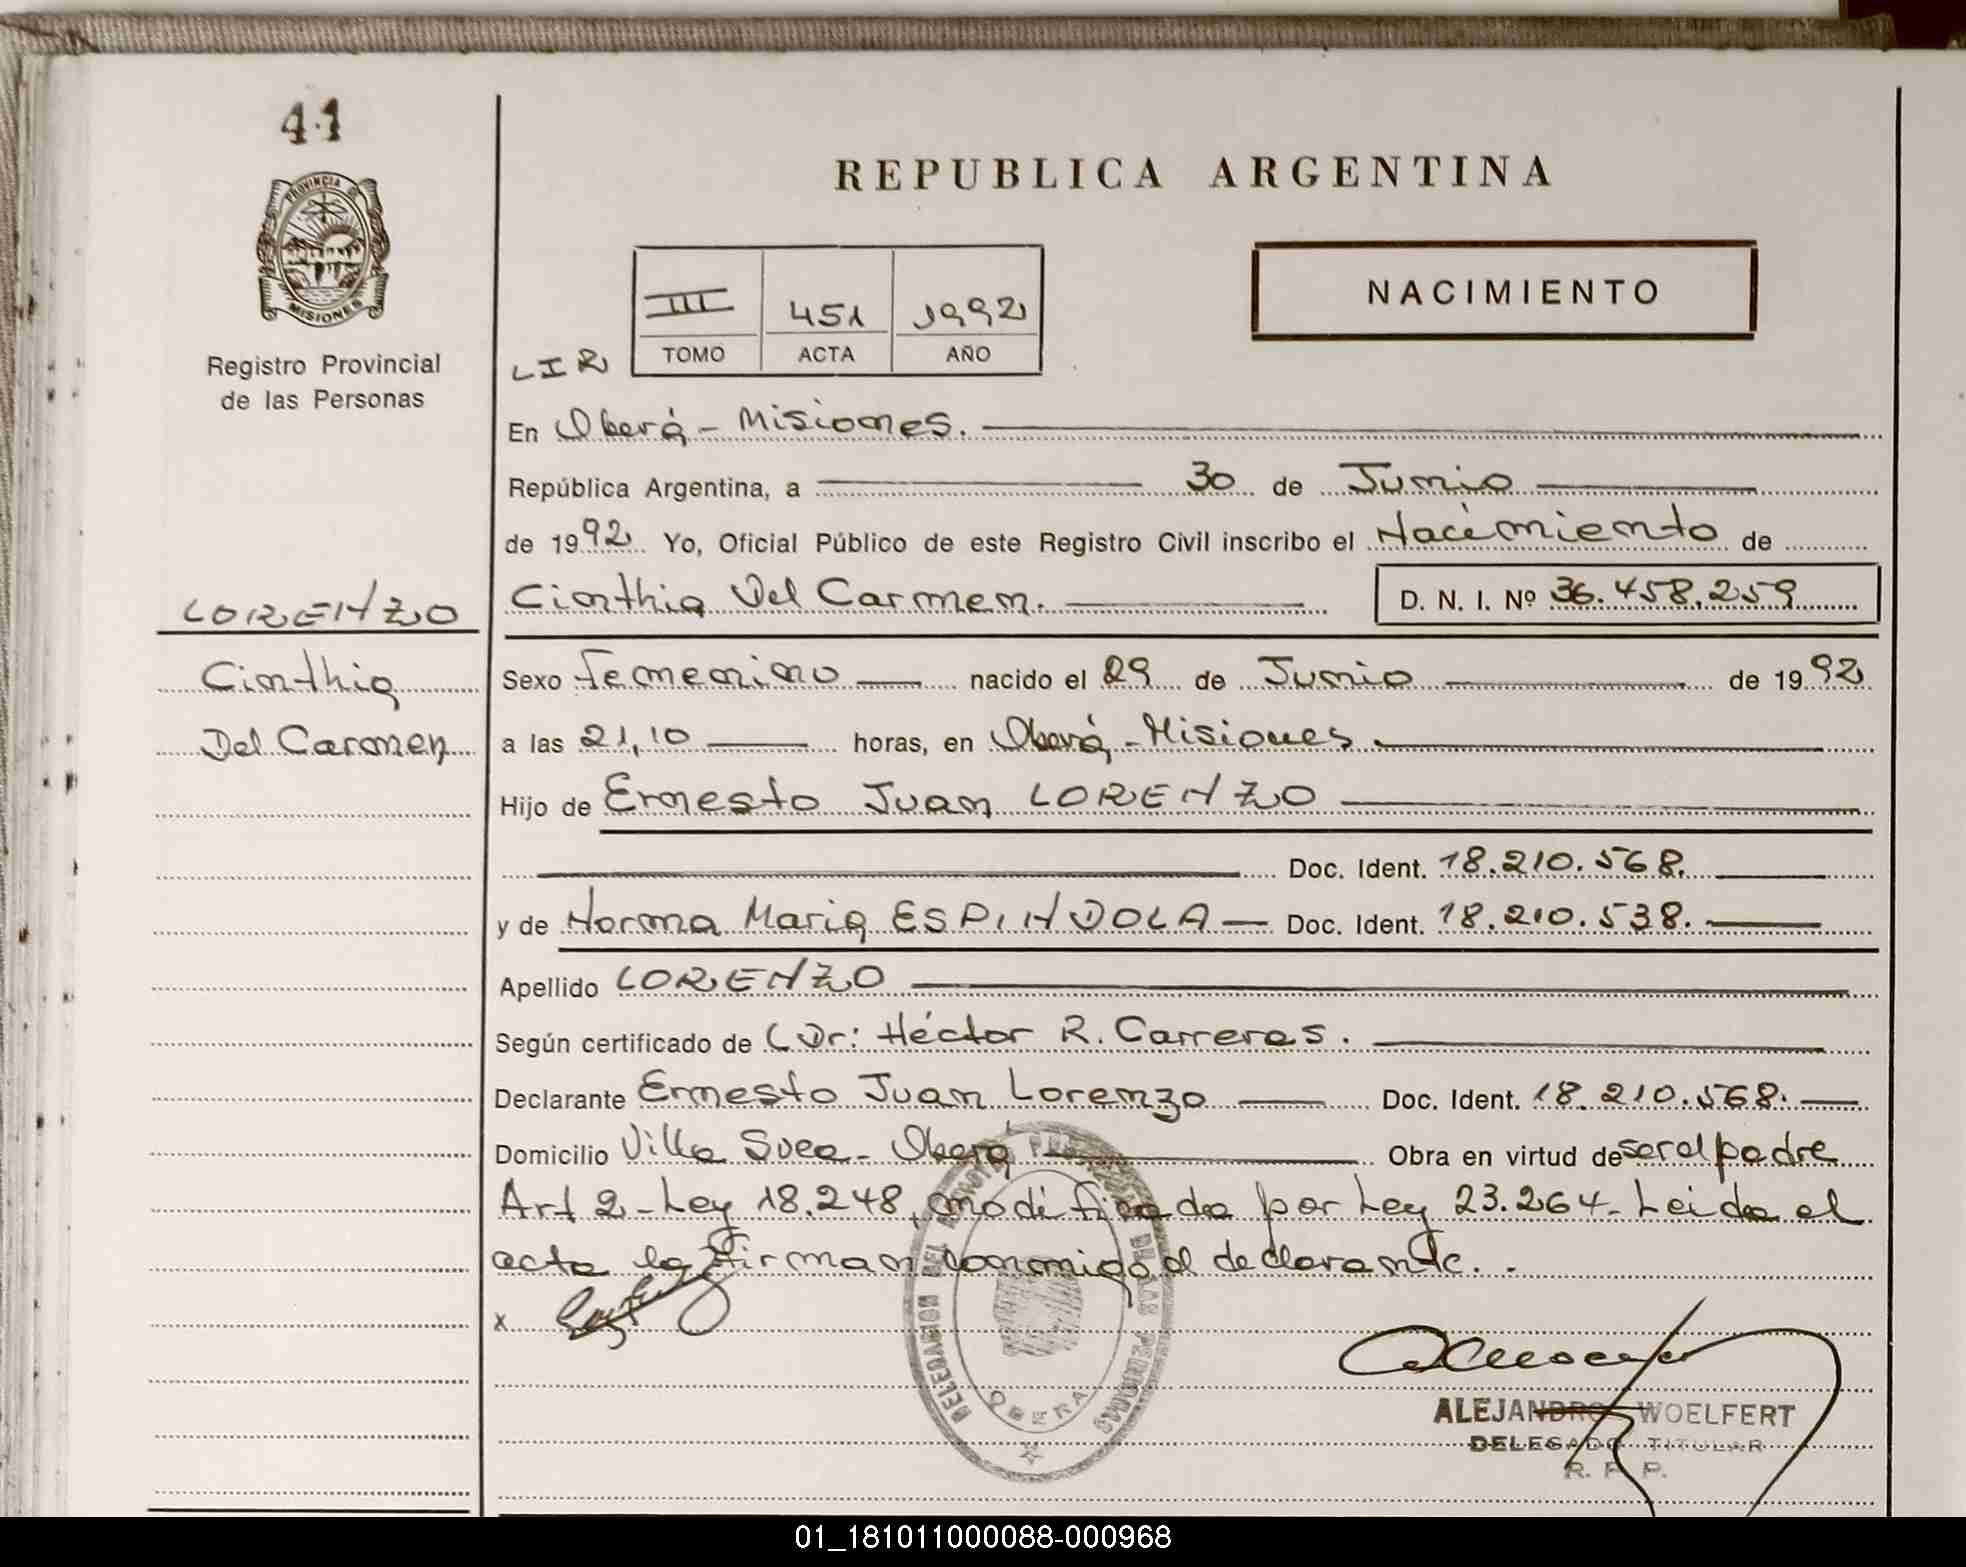 41
PROVINCIA
MISIONES
Registro Provincial
de las Personas
REPUBLICA ARGENTINA
NACIMIENTO
III 451 1992
TOMO ACTA AÑO
LIR
En Oberá - Misiones.
República Argentina, a 30 de Junio
de 1992 Yo, Oficial Público de este Registro Civil inscribo el Nacimiento de
LORENZO
Cinthia Del Carmen. D. N. I. Nº 36.458.259
Cinthia
Del Carmen
Sexo Femenino nacido el 29 de Junio de 1992
a las 21,10 horas, en Oberá - Misiones.
Hijo de Ernesto Juan LORENZO
Doc. Ident. 18.210.568.
y de Norma Maria ESPINDOLA Doc. Ident. 18.210.538.
Apellido LORENZO
Según certificado de Dr: Héctor R. Carreras.
Declarante Ernesto Juan Lorenzo Doc. Ident. 18.210.568.
Domicilio Villa Svea - Oberá Obra en virtud de ser el padre
Art 2 - Ley 18.248, modificada por Ley 23.264 - Leida el
acta la firman conmigo el declarante.
x
OBERA
ALEJANDRO WOELFERT
DELEGADO TITULAR
R. P. P.
01_181011000088-000968